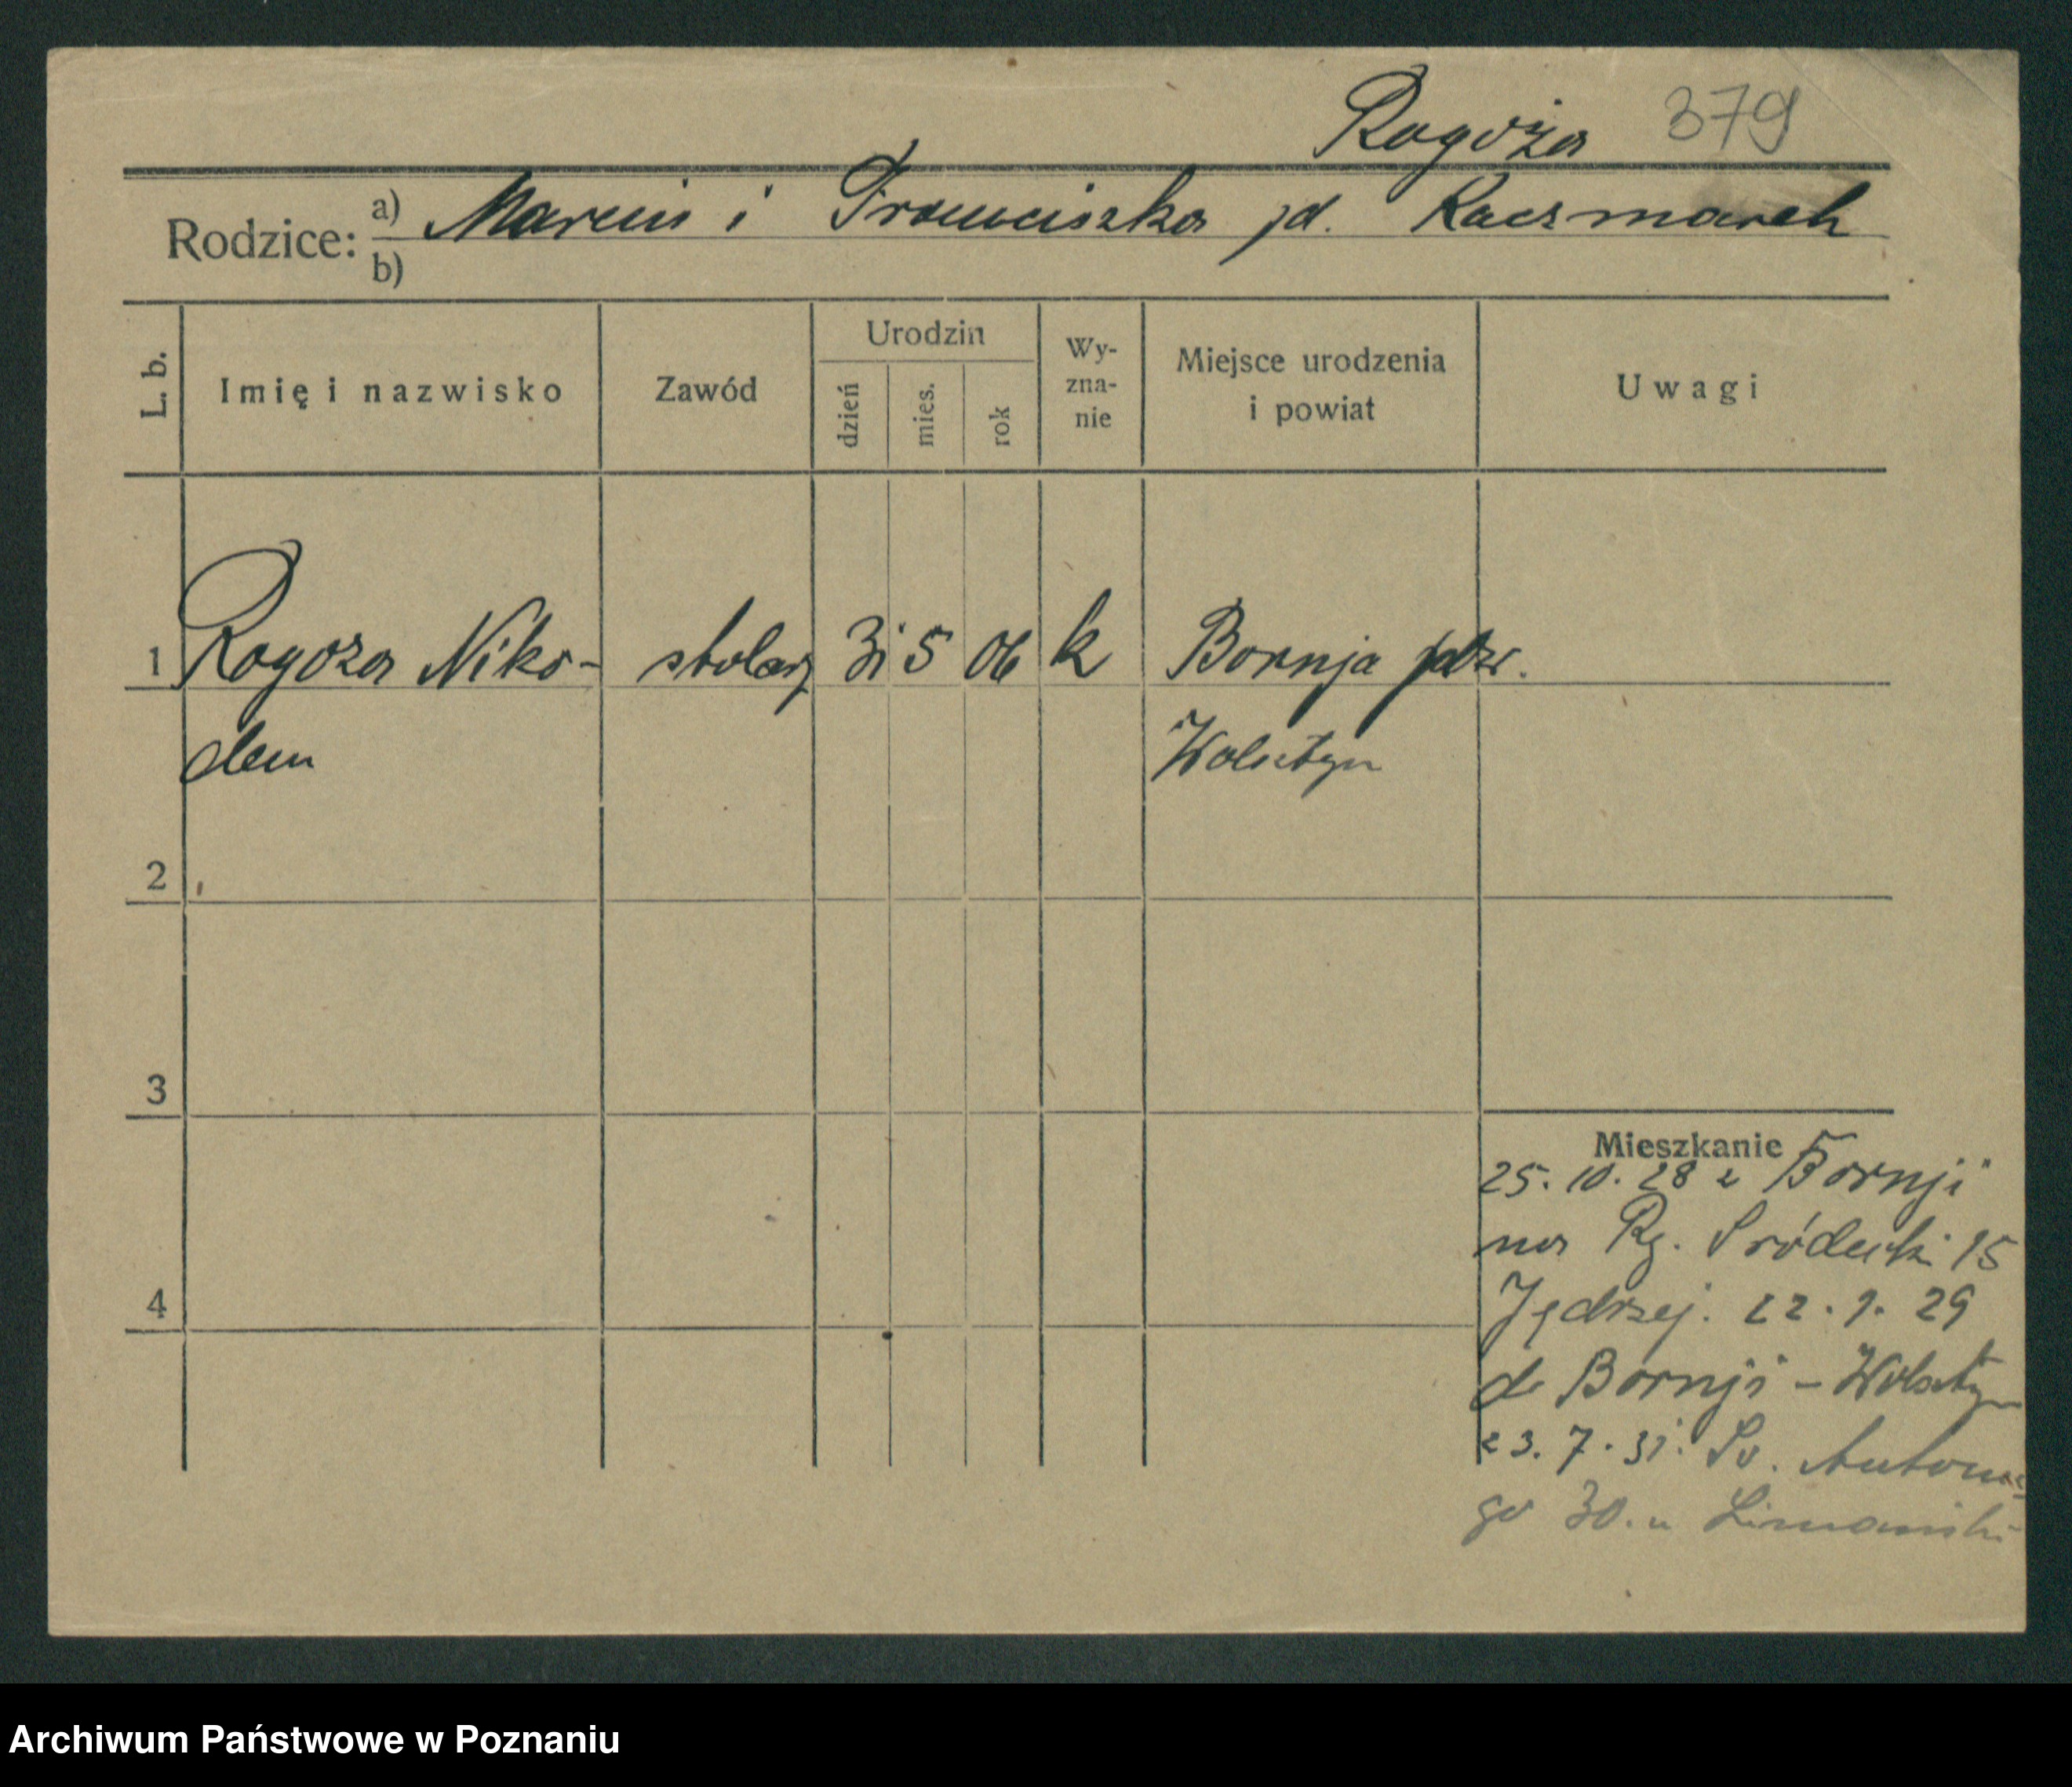 Rogoża 379
Rodzice: a) Marcin i Franciszka zd. Kaczmarek
b)
L. b. Imię i nazwisko Zawód Urodzin dzień mies. rok Wy-zna-nie Miejsce urodzenia i powiat Uwagi
1 Rogoza Niko- stolarz 31 5 06 k Bornja pow.
dem Wolsztyn
2
3
4
Mieszkanie
25. 10. 28 z Bornji
na Rg. Śródecki 15
Jędrzej. 22. 9. 29
do Bornji - Wolsztyn
23. 7. 31. Św. Antonie
go 30. u
Archiwum Państwowe w Poznaniu